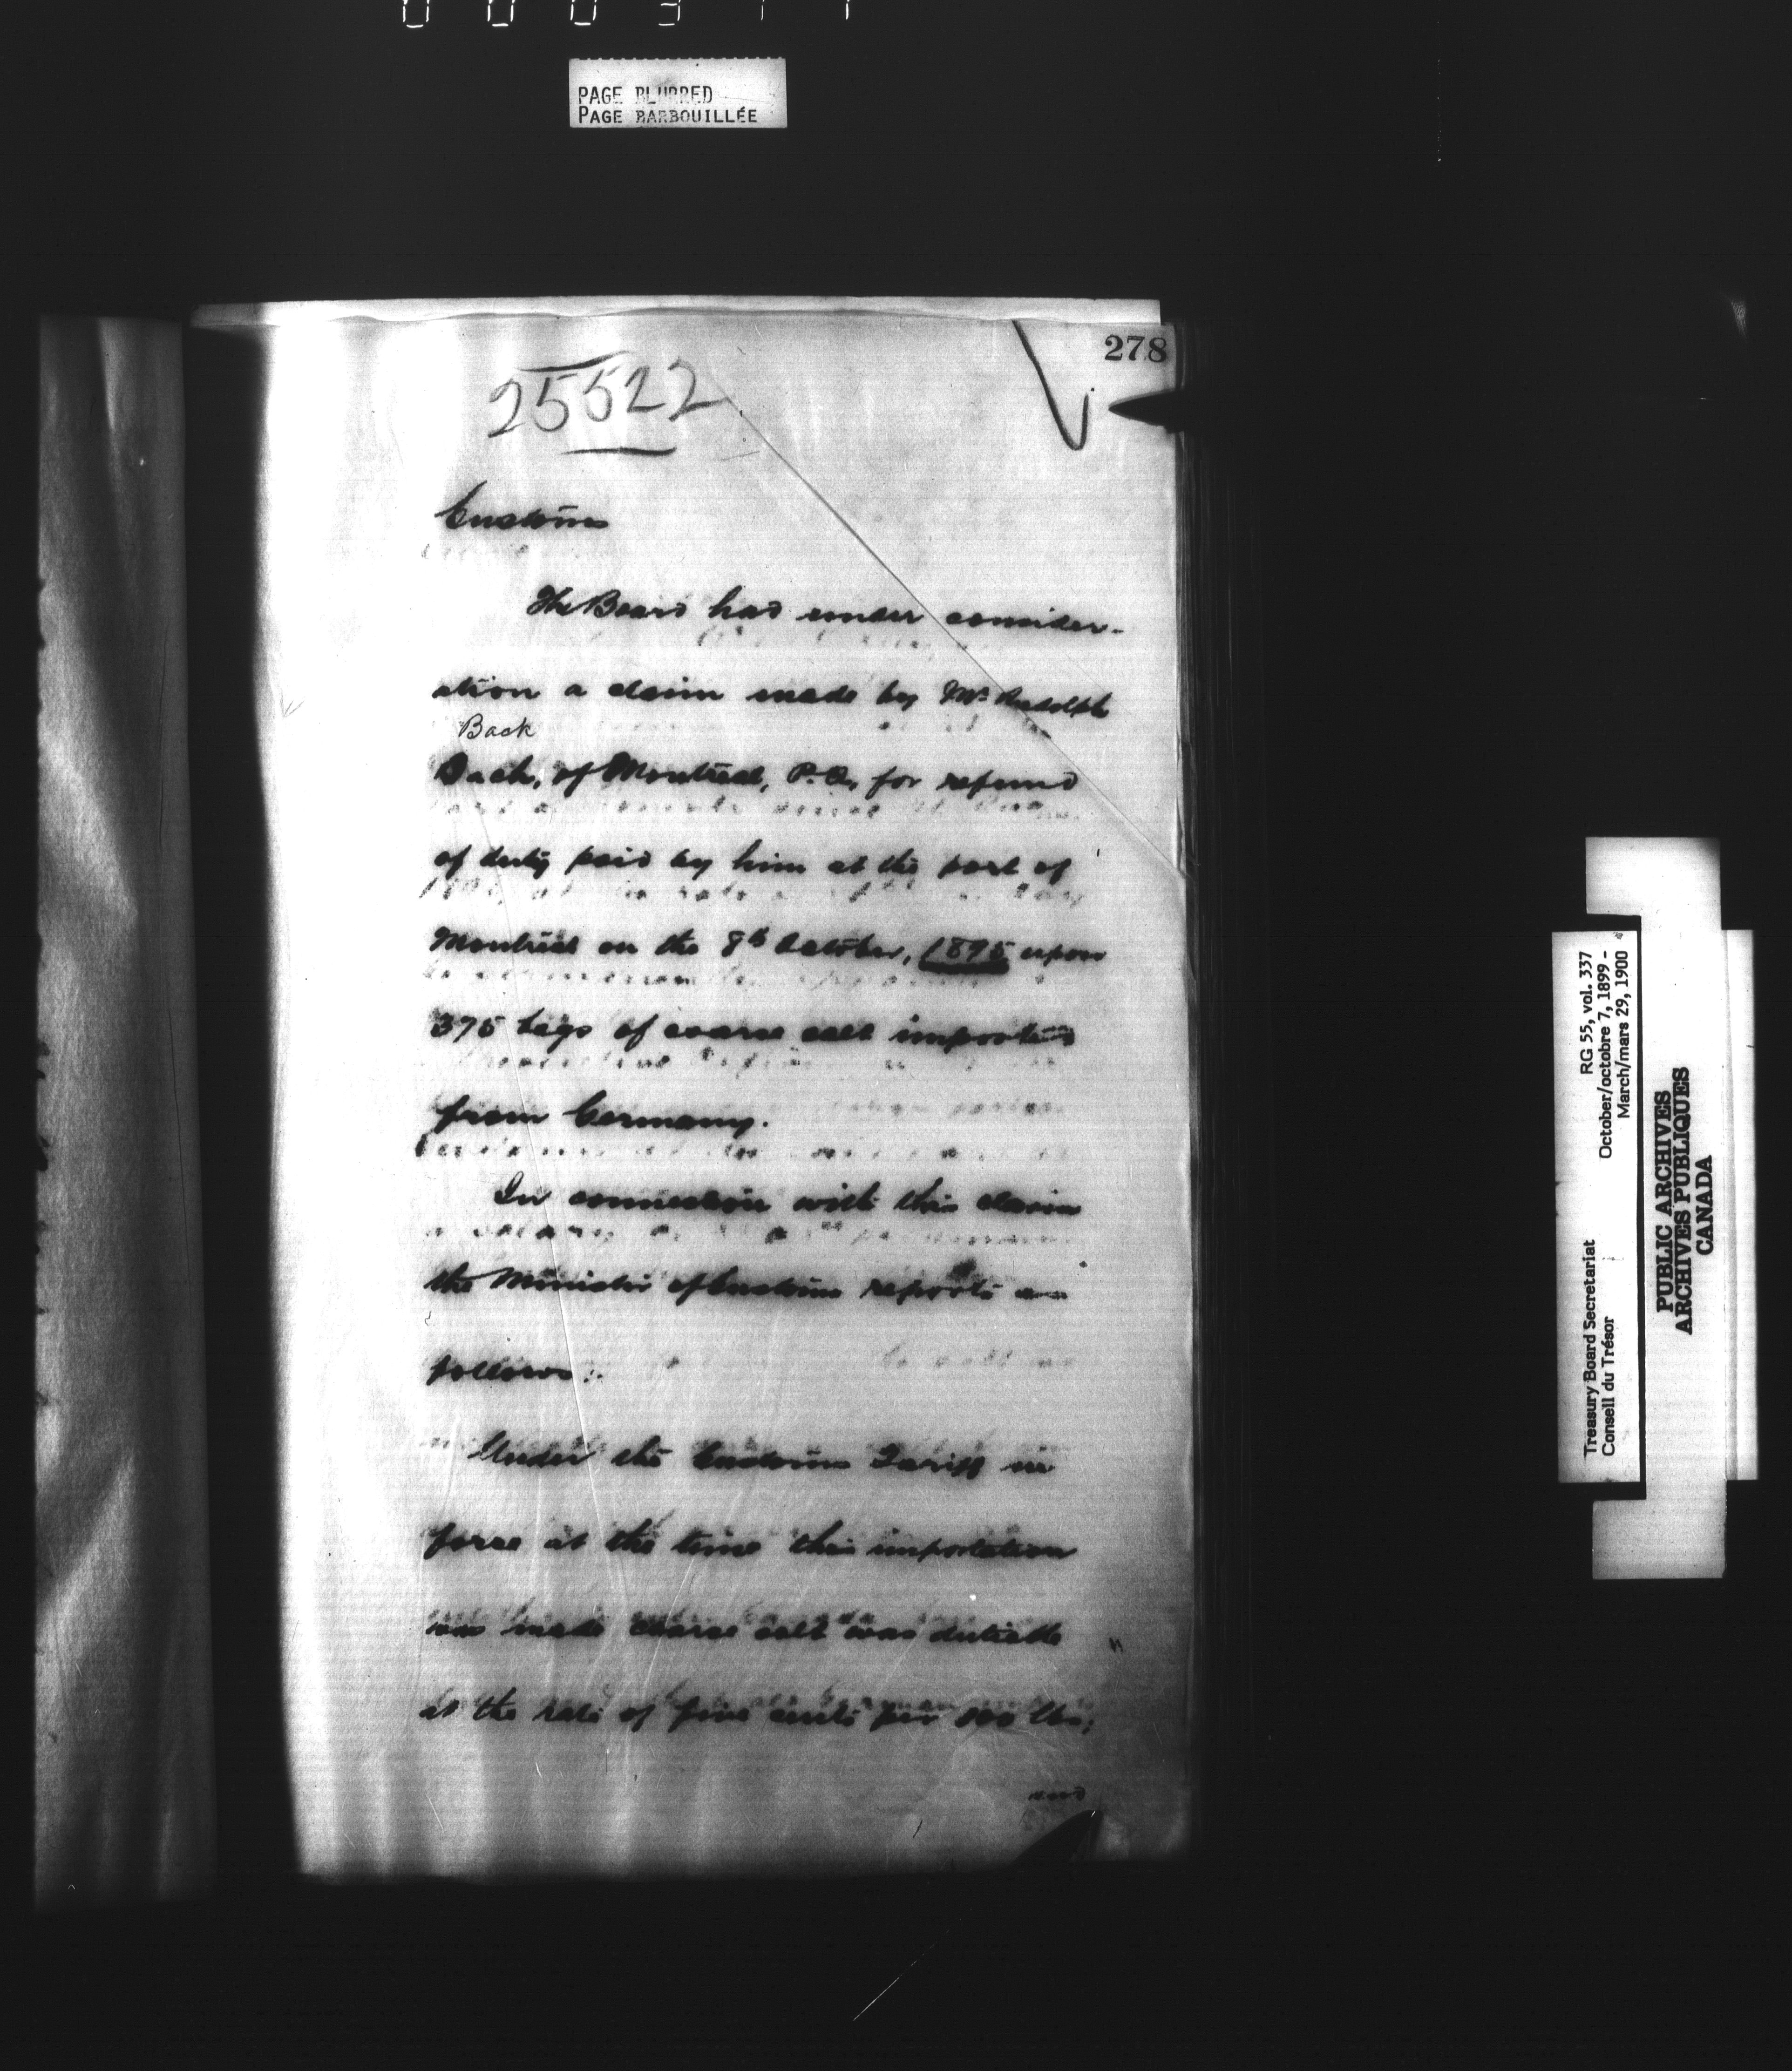 PAGE BLURRED
PAGE BARBOUILLÉE
278
25522
Customs
The Board had under consider-
ation a claim made by Mr. Rudolph
Back
Bach, of Montreal, P.Q., for refund
of duty paid by him at the port of
Montreal on the 8th October, 1895 upon
375 bags of coarse salt imported
from Germany.
In connection with this claim
the Minister of Customs reports as
follows:.
Under the Customs Tariff in
force at the time this importation
was made coarse salt was dutiable
at the rate of five cents per 100 lbs;
and
Treasury Board Secretariat RG 55, vol. 337
Conseil du Trésor October/octobre 7, 1899 -
March/mars 29, 1900
PUBLIC ARCHIVES
ARCHIVES PUBLIQUES
CANADA